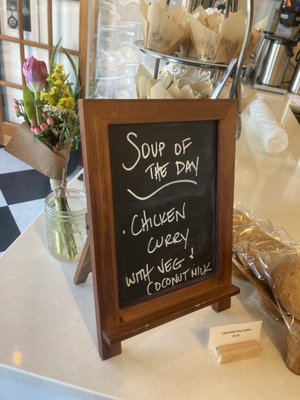 SOUP OF
THE
DAY
· CHICKEN
CURRY
WITH VEG &
COCONUT MILK